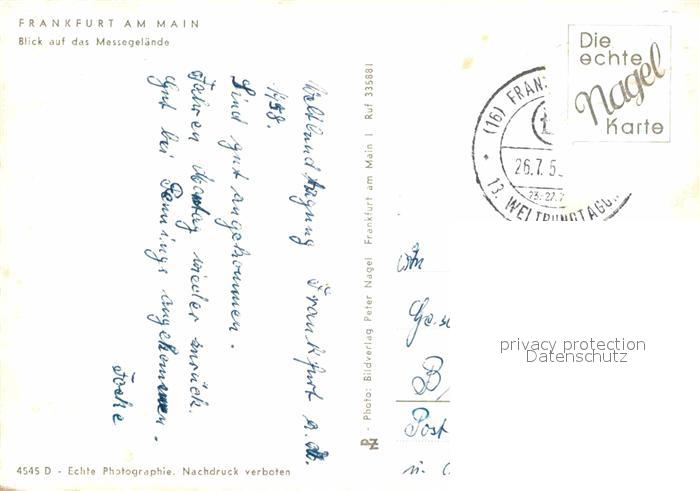 FRANKFURT AM MAIN
Blick auf das Messegelände
Weltbund Tagung Frankfurt a.M.
1958.
Sind gut angekommen.
Fahren Montag wieder zurück.
Gut bei Pennings angekommen.
4545 D - Echte Photographie. Nachdruck verboten
- Photo: Bildverlag Peter Nagel Frankfurt am Main 1 Ruf 335881
Die
echte
Nagel
Karte
(16) FRAN
26.7.5
25.-27.7
13. WELTBUNDTAGU
An
B
Post
privacy protection
Datenschutz